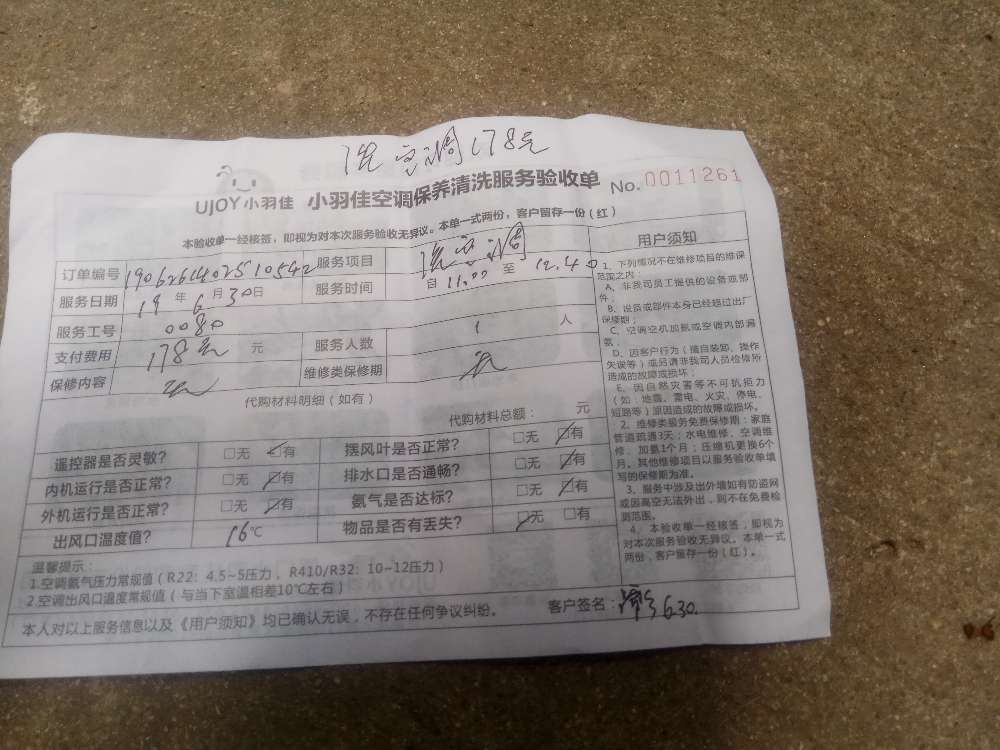 洗空调178元
UJOY小羽佳 小羽佳空调保养清洗服务验收单 No.0011261
本验收单一经核签，即视为对本次服务验收无异议。本单一式两份，客户留存一份（红）
订单编号 1906261402510542 服务项目 洗空调
服务日期 19年6月30日 服务时间 自11.00至12.40
服务工号 0080 服务人数 1人
支付费用 178元 元 维修类保修期 无
保修内容 无
代购材料明细（如有）
代购材料总额： 元
遥控器是否灵敏？ □无 ☑有 摆风叶是否正常？ □无 ☑有
内机运行是否正常？ □无 ☑有 排水口是否通畅？ □无 ☑有
外机运行是否正常？ □无 ☑有 氨气是否达标？ □无 ☑有
出风口温度值？ 16℃ 物品是否有丢失？ ☑无 □有
温馨提示：
1.空调氨气压力常规值（R22：4.5~5压力，R410/R32：10~12压力）
2.空调出风口温度常规值（与当下室温相差10℃左右）
本人对以上服务信息以及《用户须知》均已确认无误，不存在任何争议纠纷。 客户签名： 6.30.
用户须知
1、下列情况不在维修项目的维保
范围之内：
A、非我司员工提供的设备或部
件；
B、设备或部件本身已经超过出厂
保修期；
C、空调空机加氨或空调内部漏
氨；
D、因客户行为（擅自装卸、操作
失误等）或另请非我司人员检修所
造成的故障或损坏；
E、因自然灾害等不可抗拒力
（如：地震、雷电、火灾、停电、
短路等）原因造成的故障或损坏。
2、维修类服务免费保修期：家庭
管道疏通3天；水电维修、空调维
修、加氨1个月；压缩机更换6个
月。其他维修项目以服务验收单填
写的保修期为准。
3、服务中涉及出外墙如有防盗网
或因高空无法外出，则不在免费检
测范围。
4、本验收单一经核签，即视为
对本次服务验收无异议。本单一式
两份，客户留存一份（红）。